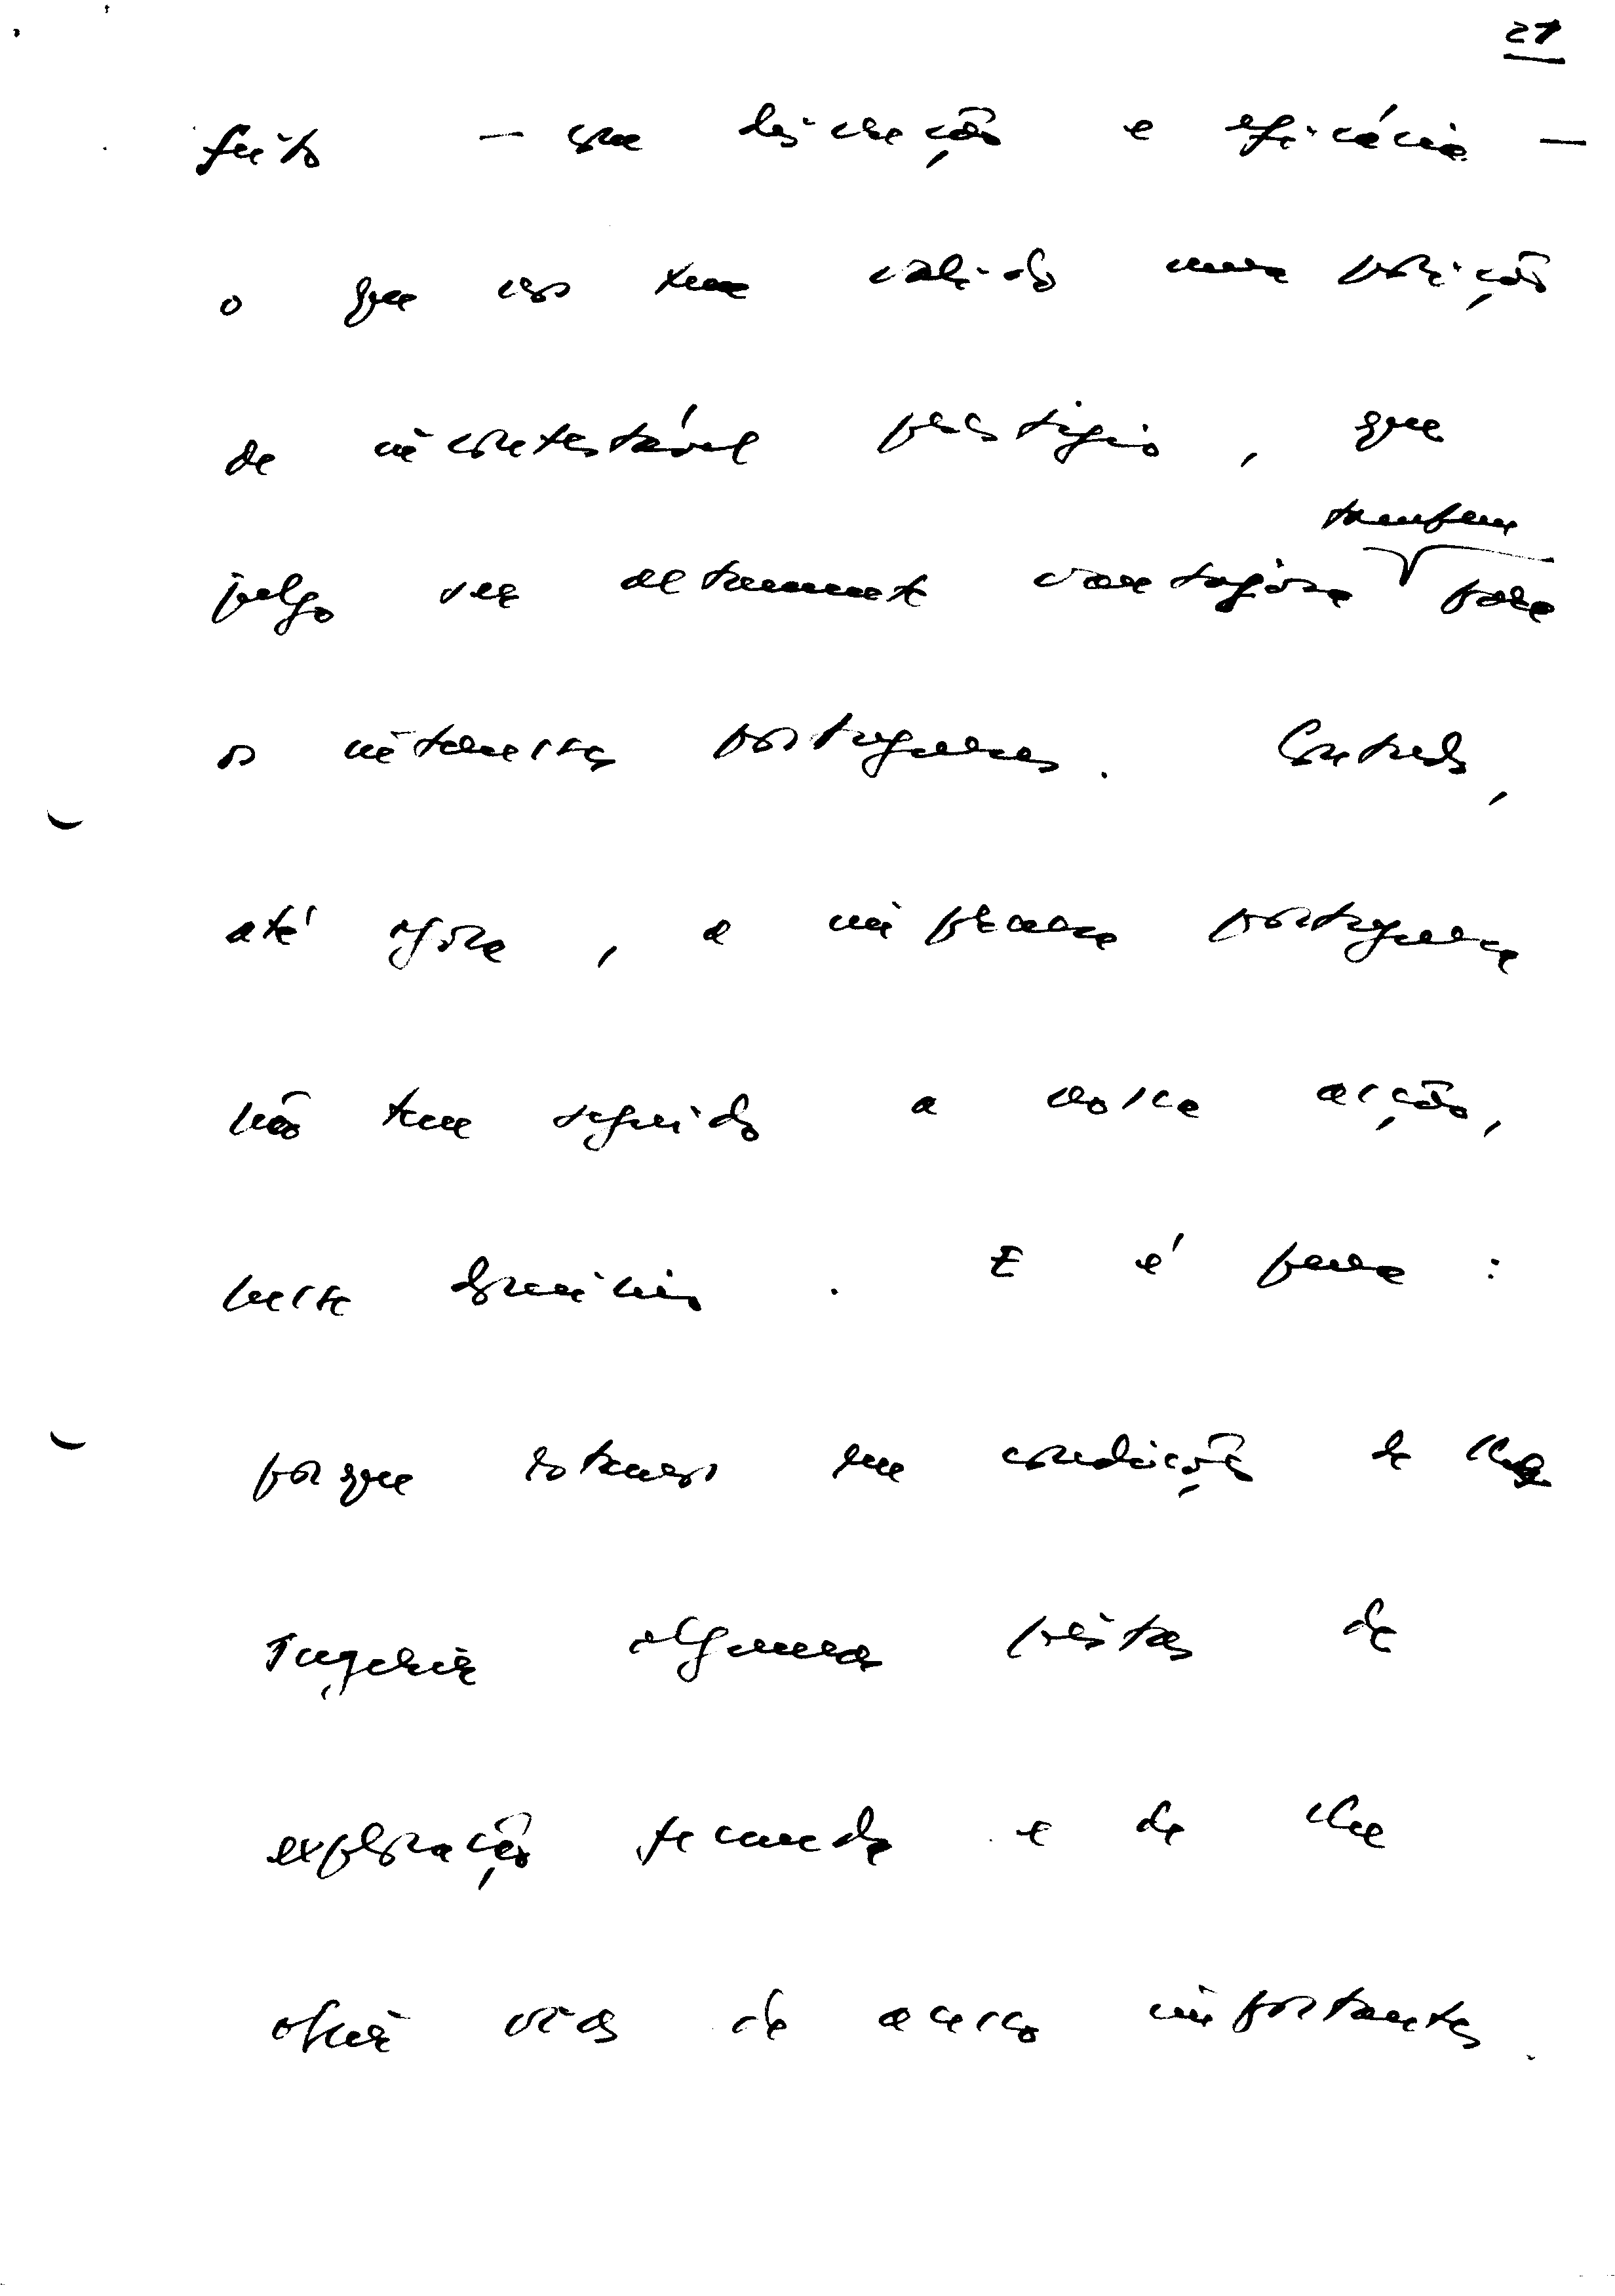 21
feito — com discreção e eficácia —
o que nos tem valido uma posição
de incontestável prestígio, que
tambem
julgo ser altamente vantajosa para
os interesses portugueses. Contudo,
até agora, a imprensa portuguesa
não tem seguido a nossa acção,
neste domínio. E é pena:
porque estamos em condições de lhe
sugerir algumas pistas de
exploração fecunda e de lhe
abrir vias de acesso importantes.